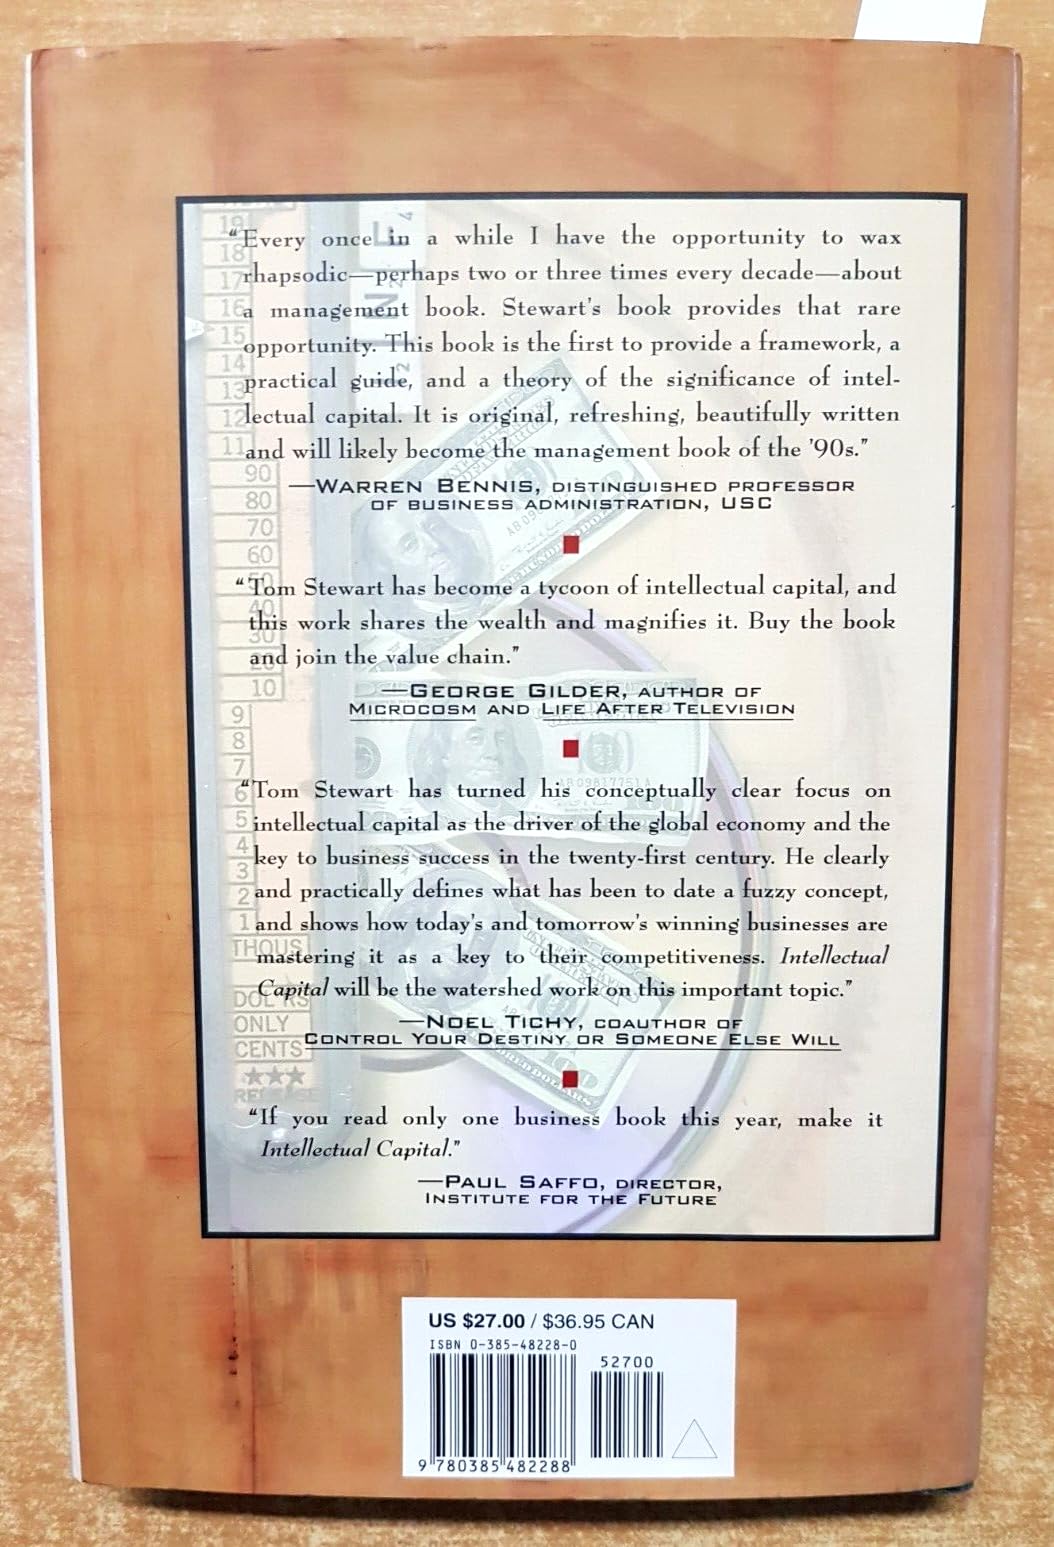 “Every once in a while I have the opportunity to wax
rhapsodic—perhaps two or three times every decade—about
a management book. Stewart's book provides that rare
opportunity. This book is the first to provide a framework, a
practical guide, and a theory of the significance of intel-
lectual capital. It is original, refreshing, beautifully written
and will likely become the management book of the '90s.”
—WARREN BENNIS, DISTINGUISHED PROFESSOR
OF BUSINESS ADMINISTRATION, USC
“Tom Stewart has become a tycoon of intellectual capital, and
this work shares the wealth and magnifies it. Buy the book
and join the value chain.”
—GEORGE GILDER, AUTHOR OF
MICROCOSM AND LIFE AFTER TELEVISION
“Tom Stewart has turned his conceptually clear focus on
intellectual capital as the driver of the global economy and the
key to business success in the twenty-first century. He clearly
and practically defines what has been to date a fuzzy concept,
and shows how today's and tomorrow's winning businesses are
mastering it as a key to their competitiveness. Intellectual
Capital will be the watershed work on this important topic.”
—NOEL TICHY, COAUTHOR OF
CONTROL YOUR DESTINY OR SOMEONE ELSE WILL
“If you read only one business book this year, make it
Intellectual Capital.”
—PAUL SAFFO, DIRECTOR,
INSTITUTE FOR THE FUTURE
19
18
17
16
15
14
13
12
11
90
80
70
60
50
40
30
20
10
9
8
7
6
5
4
3
2
1
THOUS
DOL'RS
ONLY
CENTS
US $27.00 / $36.95 CAN
ISBN 0-385-48228-0
52700
9 780385 482288